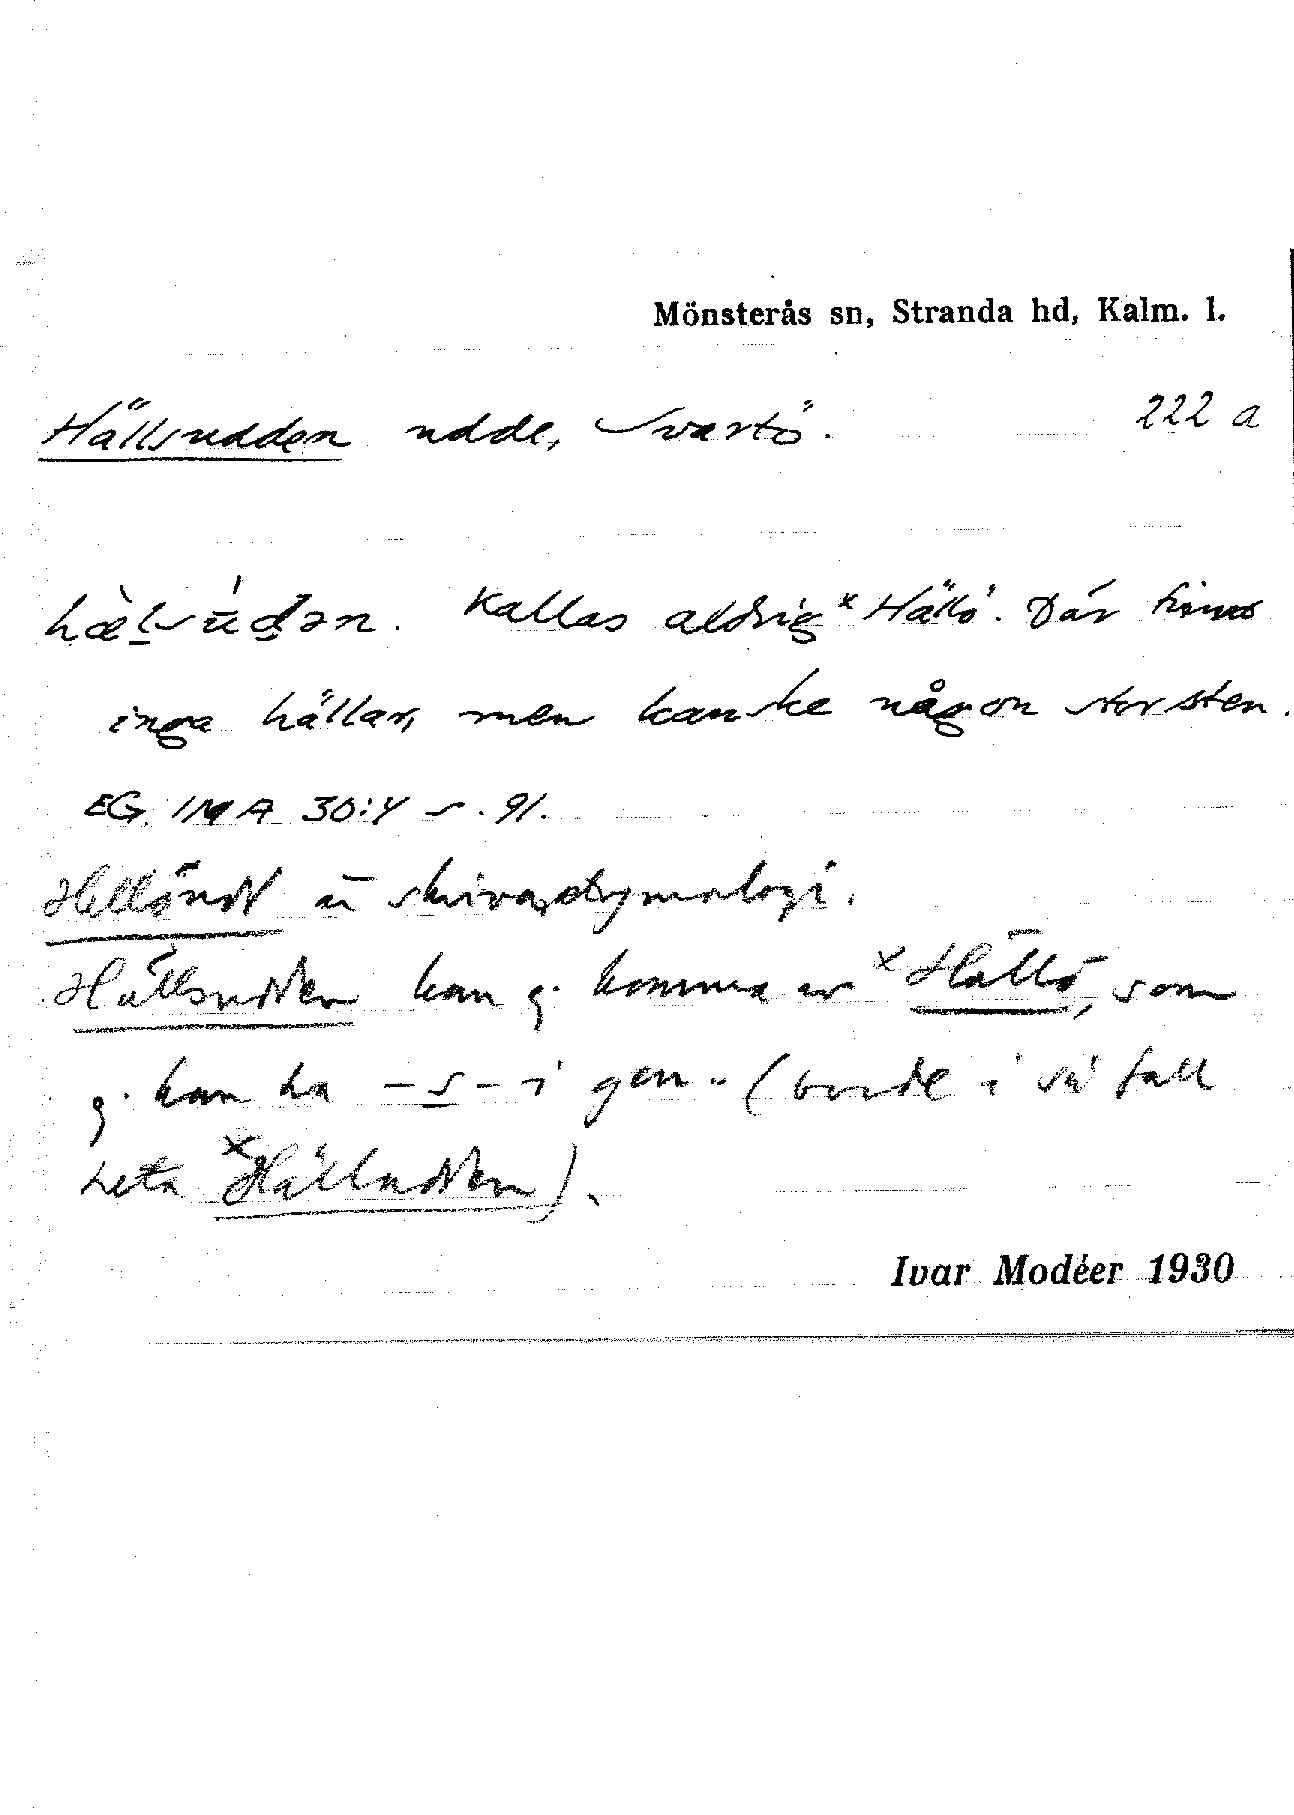 Mönsterås sn, Stranda hd, Kalm. l.
Hällsudden udde, Svartö. 222 a
hæ̀lsúdən. Kallas aldrig ˣHällö. Där finns
inga hällar, men kanske någon storsten.
EG. IMA 30:4 s. 91.
Hellöudd är skrivaretymologi.
Hällsudden kan ej komma av ˣHällö, som
ej kan ha -s- i gen. (borde i så fall
heta ˣHälludden).
Ivar Modéer 1930